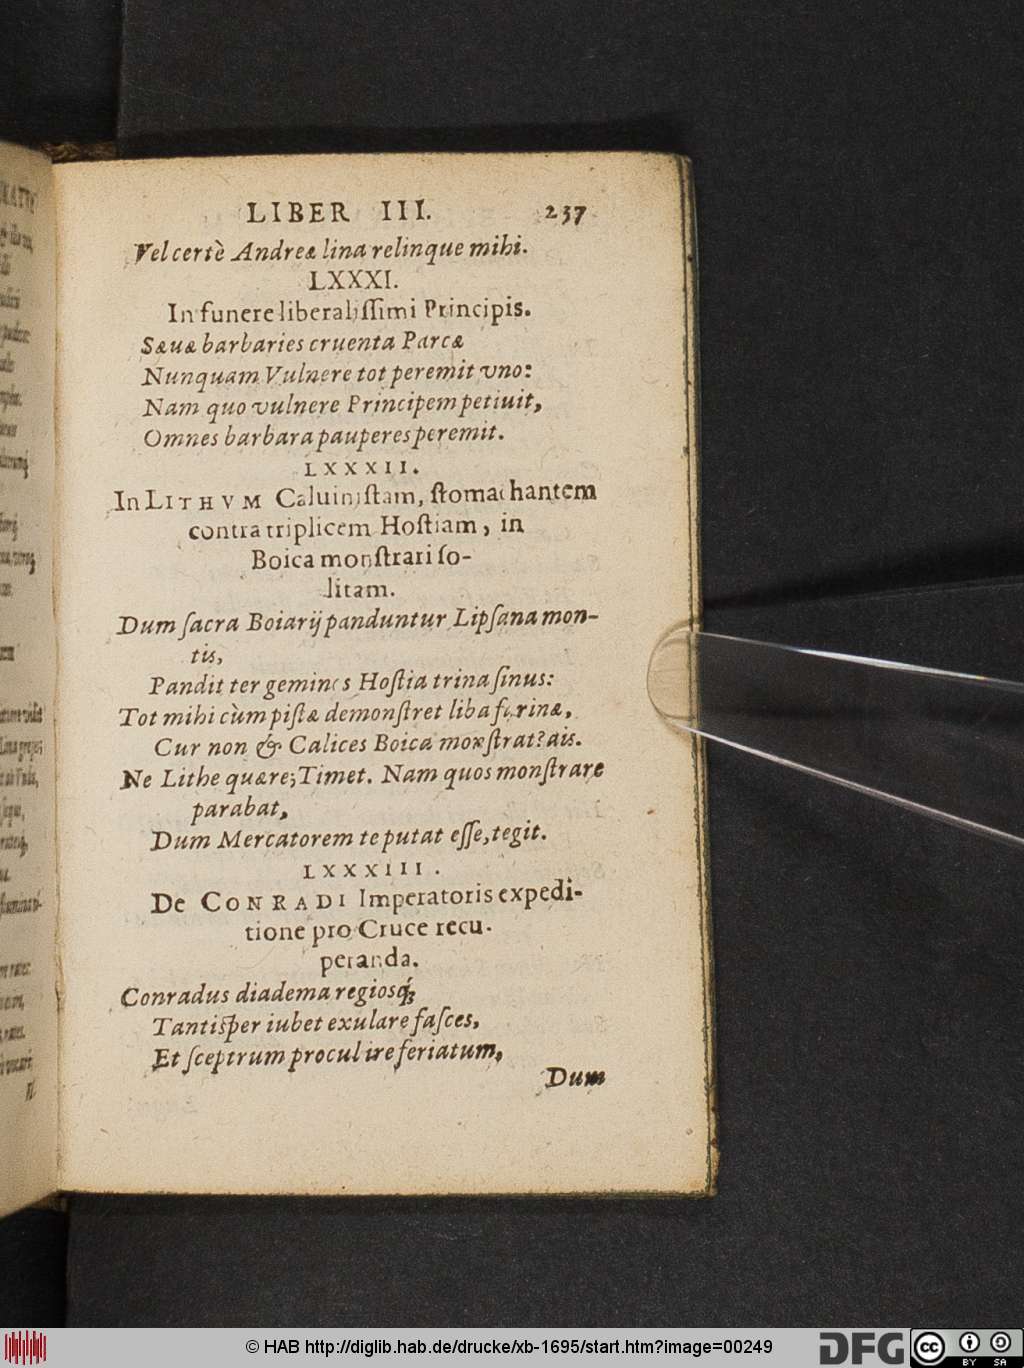 LIBER III. 237
Vel certè Andreæ lina relinque mihi.
LXXXI.
In funere liberaliſſimi Principis.
Sæuæ barbaries cruenta Parcæ
Nunquam Vulnere tot peremit vno:
Nam quo vulnere Principem petiuit,
Omnes barbara pauperes peremit.
LXXXII.
In LITHVM Caluiniſtam, ſtomachantem
contra triplicem Hoſtiam, in
Boica monſtrari ſo-
litam.
Dum ſacra Boiarij panduntur Lipſana mon-
tis,
Pandit ter geminos Hoſtia trina ſinus:
Tot mihi cùm piſtæ demonſtret liba farinæ,
Cur non & Calices Boica monſtrat? ais.
Ne Lithe quære; Timet. Nam quos monſtrare
parabat,
Dum Mercatorem te putat eſſe, tegit.
LXXXIII.
De CONRADI Imperatoris expedi-
tione pro Cruce recu-
peranda.
Conradus diadema regiosq́;
Tantiſper iubet exulare faſces,
Et ſceptrum procul ire feriatum,
Dum
© HAB http://diglib.hab.de/drucke/xb-1695/start.htm?image=00249
DFG
cc
BY SA